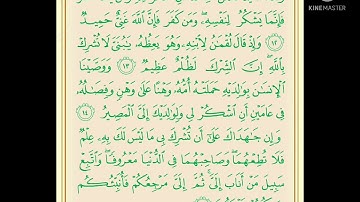 KINEMASTER
فَإِنَّمَا يَشْكُرُ لِنَفْسِهِۦ وَمَن كَفَرَ فَإِنَّ ٱللَّهَ غَنِىٌّ حَمِيدٌ
١٢ وَإِذْ قَالَ لُقْمَٰنُ لِٱبْنِهِۦ وَهُوَ يَعِظُهُۥ يَٰبُنَىَّ لَا تُشْرِكْ
بِٱللَّهِ إِنَّ ٱلشِّرْكَ لَظُلْمٌ عَظِيمٌ ١٣ وَوَصَّيْنَا
ٱلْإِنسَٰنَ بِوَٰلِدَيْهِ حَمَلَتْهُ أُمُّهُۥ وَهْنًا عَلَىٰ وَهْنٍ وَفِصَٰلُهُۥ
فِى عَامَيْنِ أَنِ ٱشْكُرْ لِى وَلِوَٰلِدَيْكَ إِلَىَّ ٱلْمَصِيرُ ١٤
وَإِن جَٰهَدَاكَ عَلَىٰٓ أَن تُشْرِكَ بِى مَا لَيْسَ لَكَ بِهِۦ عِلْمٌ
فَلَا تُطِعْهُمَا وَصَاحِبْهُمَا فِى ٱلدُّنْيَا مَعْرُوفًا وَٱتَّبِعْ
سَبِيلَ مَنْ أَنَابَ إِلَىَّ ثُمَّ إِلَىَّ مَرْجِعُكُمْ فَأُنَبِّئُكُم